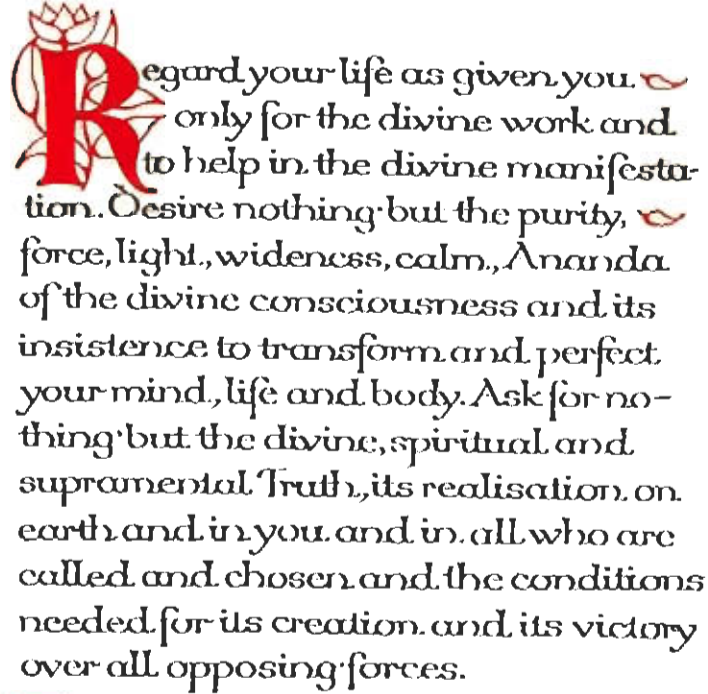 Regard your life as given you
only for the divine work and
to help in the divine manifesta-
tion. Desire nothing but the purity,
force, light, wideness, calm, Ananda
of the divine consciousness and its
insistence to transform and perfect
your mind, life and body. Ask for no-
thing but the divine, spiritual and
supramental Truth, its realisation on
earth and in you and in all who are
called and chosen and the conditions
needed for its creation and its victory
over all opposing forces.